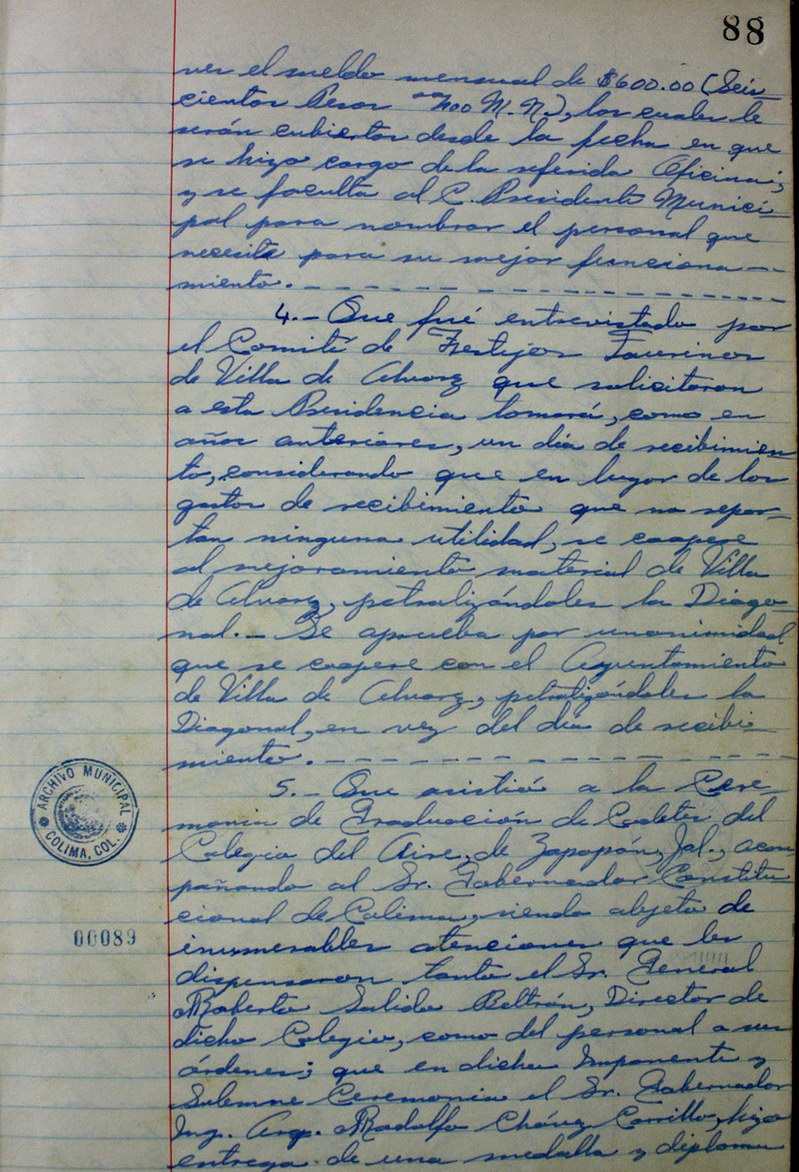 88
ver el sueldo mensual de $600.00 (Seis
cientos Pesos 00/100 M.N.), los cuales le
serán cubiertos desde la fecha en que
se hizo cargo de la referida Oficina;
y se faculta al C. Presidente Munici-
pal para nombrar el personal que
necesita para su mejor funciona-
miento.
4.- Que fué entrevistado por
el Comité de Festejos Taurinos
de Villa de Alvarez que solicitaron
a esta Presidencia tomará, como en
años anteriores, un día de recibimien
to, considerando que en lugar de los
gastos de recibimiento que no repor-
tan ninguna utilidad, se coopere
al mejoramiento material de Villa
de Alvarez, petrolizándoles la Diago-
nal.- Se aprueba por unanimidad
que se coopere con el Ayuntamiento
de Villa de Alvarez, petrolizándoles la
Diagonal, en vez del día de recibi-
miento.
5.- Que asistió a la Cere-
monia de Graduación de Cadetes del
Colegio del Aire, de Zapopán, Jal., acom
pañando al Sr. Gobernador Constitu
cional de Colima, siendo objeto de
inumerables atenciones que les
dispensaron tanto el Sr. General
Roberto Salido Beltrán, Director de
dicho Colegio, como del personal a sus
órdenes; que en dicha Imponente y
Solemne Ceremonia el Sr. Gobernador
Ing. Arq. Rodolfo Chávez Carrillo, hizo
entrega de una medalla y diploma
ARCHIVO MUNICIPAL
COLIMA, COL.
00089